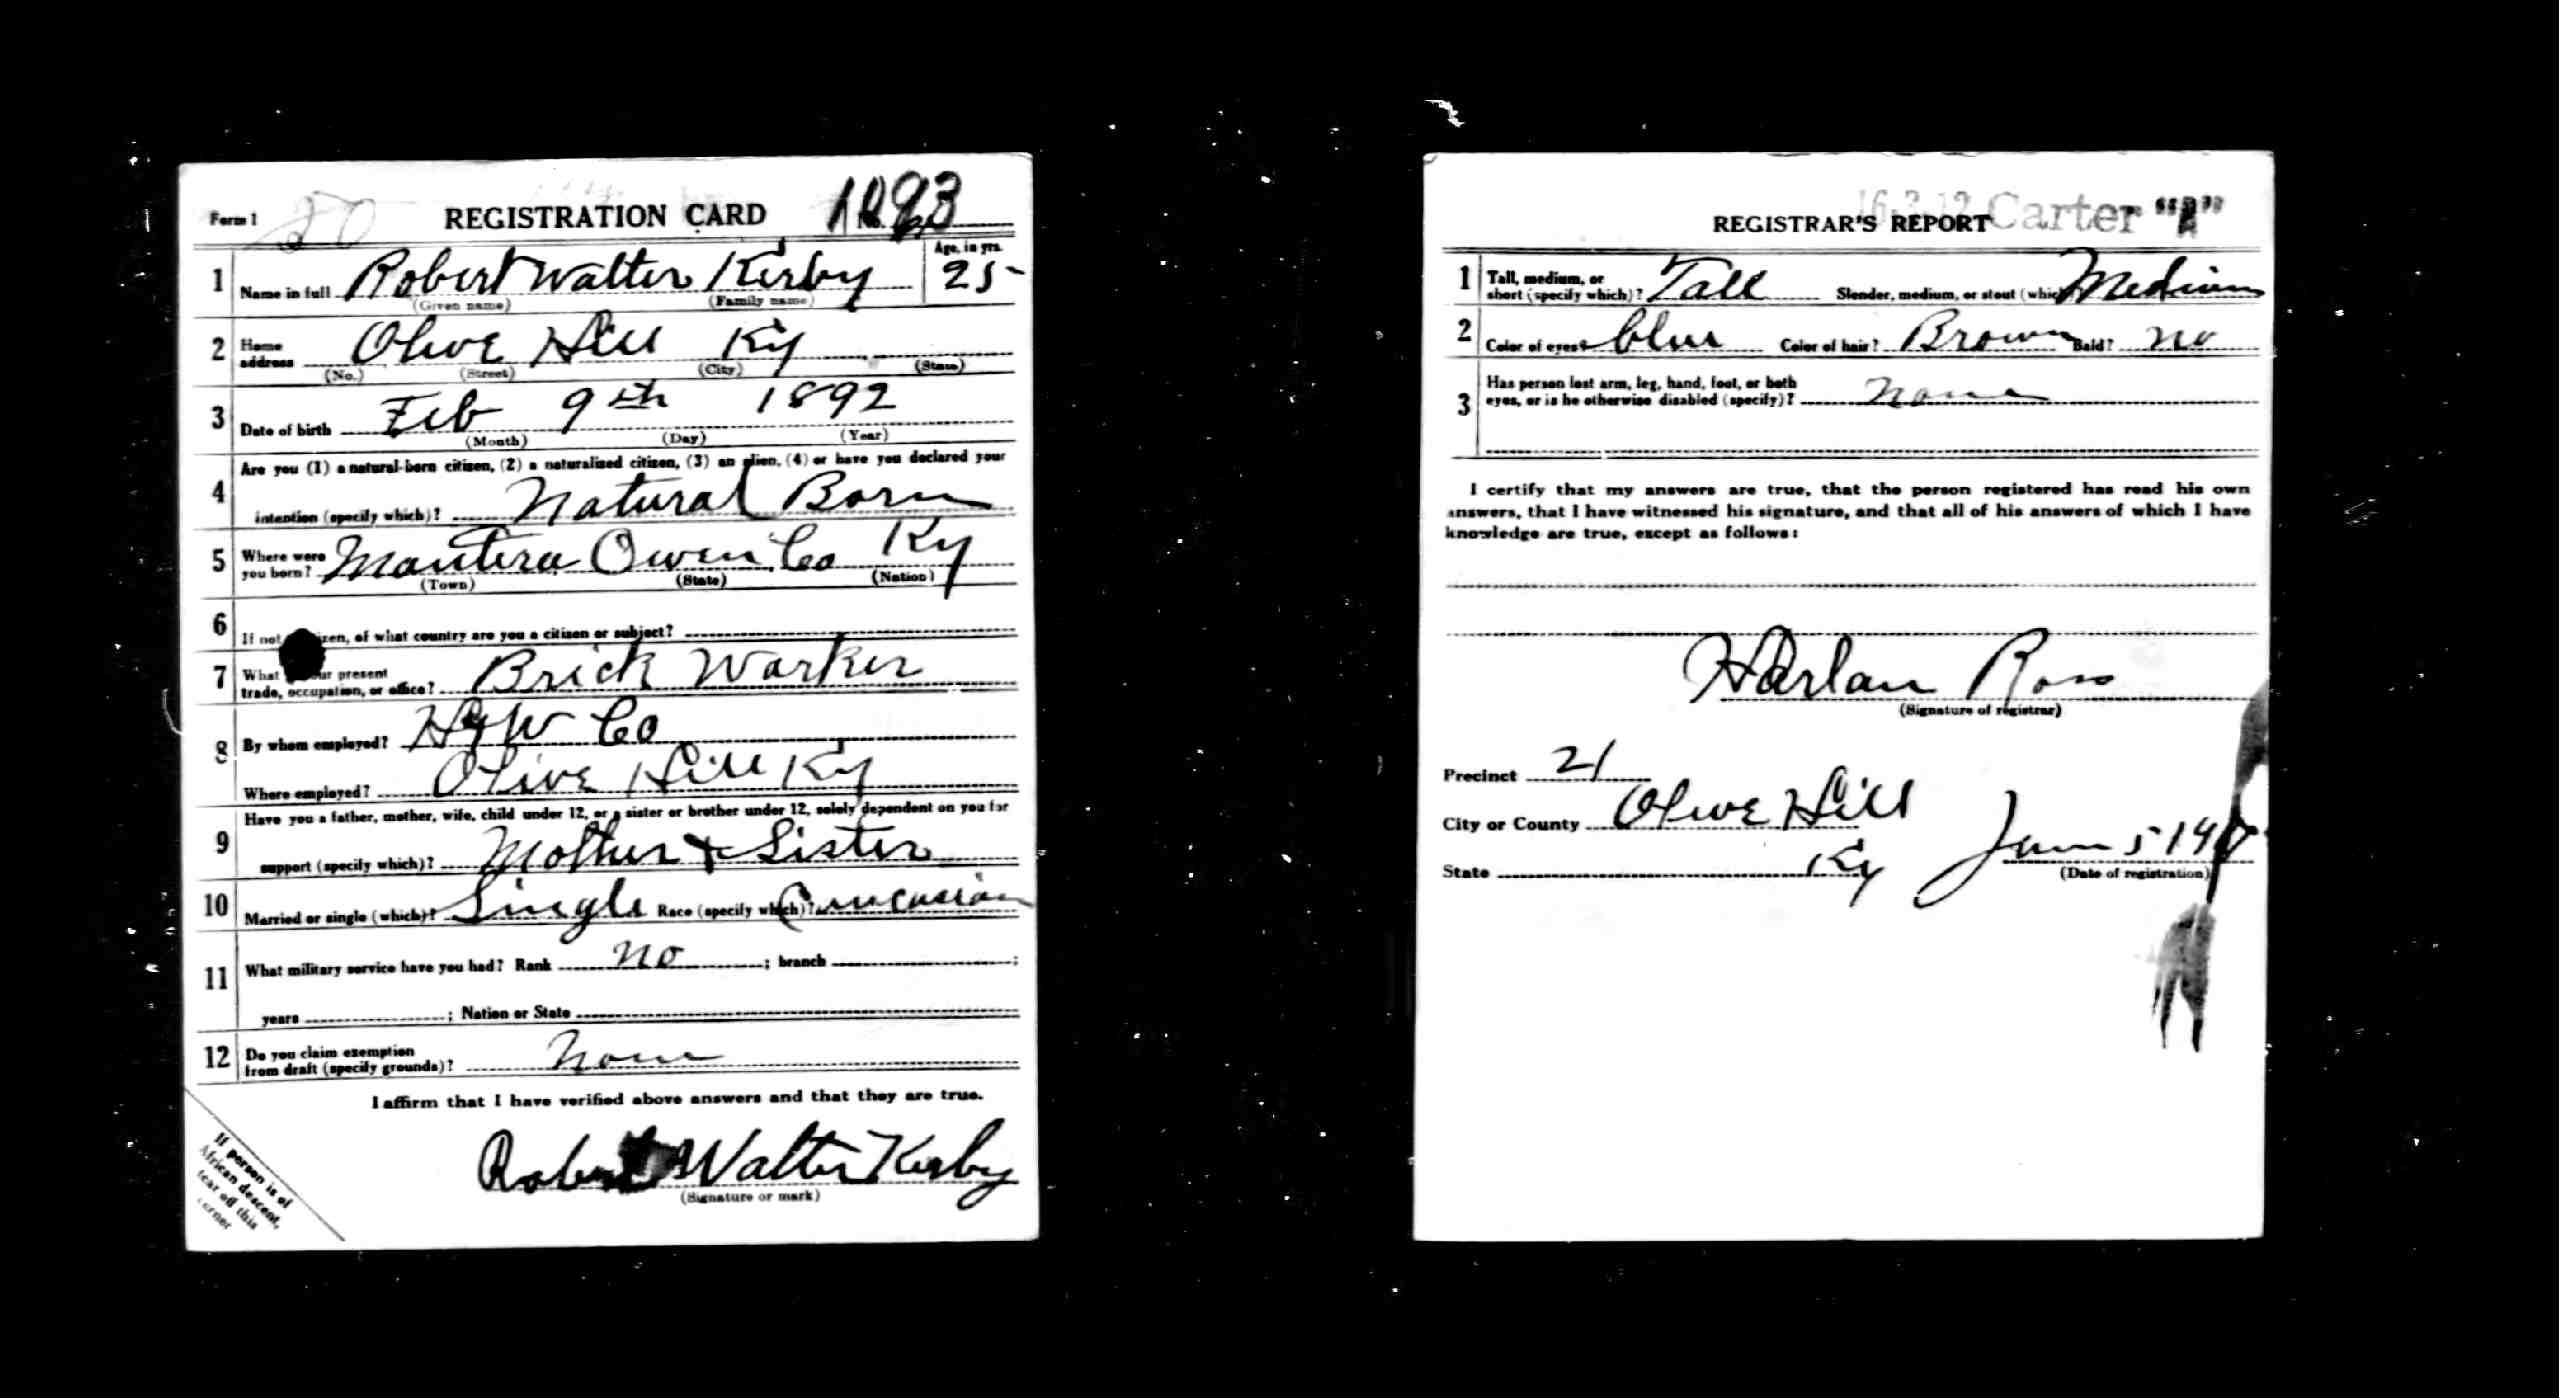 Form 1 20 REGISTRATION CARD No. 1893
1 Name in full Robert Walter Kirby Age, in yrs. 25
(Given name) (Family name)
2 Home address Olive Hill Ky
(No.) (Street) (City) (State)
3 Date of birth Feb 9th 1892
(Month) (Day) (Year)
Are you (1) a natural-born citizen, (2) a naturalized citizen, (3) an alien, (4) or have you declared your
4 intention (specify which)? Natural Born
5 Where were you born? Mantera Owen Co Ky
(Town) (State) (Nation)
6 If not citizen, of what country are you a citizen or subject?
7 What your present
trade, occupation, or office? Brick Warker
8 By whom employed? H & W Co
Where employed? Olive Hill Ky
Have you a father, mother, wife, child under 12, or a sister or brother under 12, solely dependent on you for
9 support (specify which)? Mother & Sister
10 Married or single (which)? Single Race (specify which)? Caucasian
11 What military service have you had? Rank no ; branch ;
years ; Nation or State
12 Do you claim exemption
from draft (specify grounds)? None
I affirm that I have verified above answers and that they are true.
Robert Walter Kirby
(Signature or mark)
If person is of
African descent,
tear off this
corner
REGISTRAR'S REPORT Carter "A"
1 Tall, medium, or
short (specify which)? Tall Slender, medium, or stout (which Medium
2 Color of eyes? blue Color of hair? Brown Bald? no
3 Has person lost arm, leg, hand, foot, or both
eyes, or is he otherwise disabled (specify)? None
I certify that my answers are true, that the person registered has read his own
answers, that I have witnessed his signature, and that all of his answers of which I have
knowledge are true, except as follows:
Harlan Ross
(Signature of registrar)
Precinct 21
City or County Olive Hill
State Ky June 5 1917
(Date of registration)